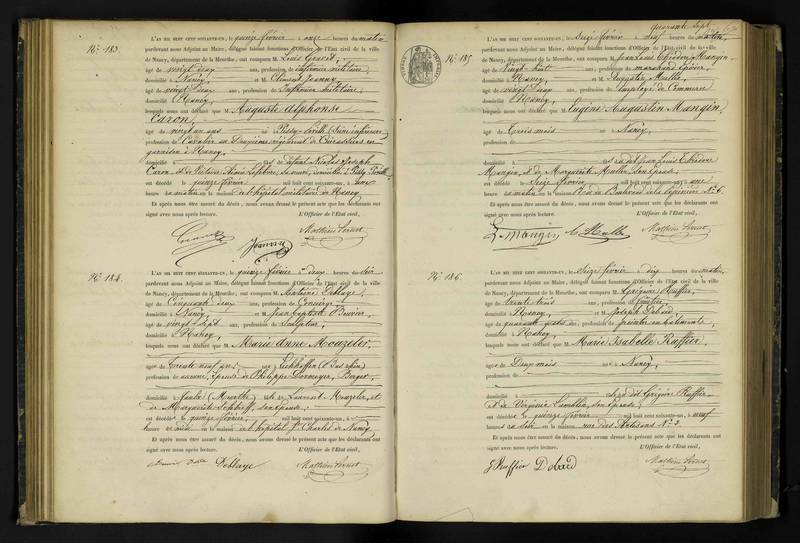 N.º 183.
L'AN MIL HUIT CENT SOIXANTE-UN, le quinze février à onze heures du matin
pardevant nous Adjoint au Maire, délégué faisant fonctions d'Officier de l'État civil de la ville
de Nancy, département de la Meurthe, ont comparu M. Louis
âgé de vingt deux ans, profession de infirmier militaire,
domicilié à Nancy, et M. Clément
âgé de vingt deux ans, profession de Infirmier militaire,
domicilié à Nancy,
lesquels nous ont déclaré que M. Auguste Alphonse
Caron,
âgé de vingt un ans né à Pissy-Poville (Seine inférieure)
profession de Cavalier au Deuxième régiment de Cuirassiers en
garnison à Nancy
domicilié à fils de défunt Nicolas Joseph
Caron et de Victoire Lefebvre, sa veuve, domiciliée à Pissy Poville
est décédé le quinze février mil huit cent soixante-un, à une
heure du matin en la maison de l'hôpital militaire de Nancy
Et après nous être assuré du décès, nous avons dressé le présent acte que les déclarants ont
signé avec nous après lecture. L'Officier de l'État civil,
N.º 184.
L'AN MIL HUIT CENT SOIXANTE-UN, le quinze février à deux heures du soir
pardevant nous Adjoint au Maire, délégué faisant fonctions d'Officier de l'État civil de la ville
de Nancy, département de la Meurthe, ont comparu M. Antoine Deblaye,
âgé de Cinquante deux ans, profession de Concierge
domicilié à Nancy, et M. Jean Baptiste Bouvier,
âgé de vingt sept ans, profession de Sculpteur,
domicilié à Nancy,
lesquels nous ont déclaré que M. Marie Anne Mouzeler,
âgée de trente neuf ans née à Eschhoffen (Bas Rhin)
profession de aucune, Épouse de Philippe Berger,
domicilié à (Meurthe) fille de Laurent Mouzeler, et
de Marguerite son épouse
est décédée le quinze février mil huit cent soixante-un, à
heure en la maison de l'hôpital St Charles de Nancy
Et après nous être assuré du décès, nous avons dressé le présent acte que les déclarants ont
signé avec nous après lecture. L'Officier de l'État civil,
Deblaye
Quarante Sept
N.º 185
L'AN MIL HUIT CENT SOIXANTE-UN, le Seize février à dix heures du matin,
pardevant nous Adjoint au Maire, délégué faisant fonctions d'Officier de l'État civil de la ville
de Nancy, département de la Meurthe, ont comparu M. Jean Louis Théodore Mangin,
âgé de vingt six ans, profession de marchand épicier,
domicilié à Nancy, et M. Auguste Muller,
âgé de vingt deux ans, profession de Employé de Commerce
domicilié à Nancy,
lesquels nous ont déclaré que M. Eugène Augustin Mangin,
âgé de Trois mois né à Nancy,
profession de
domicilié à fils du dit Jean Louis Théodore
Mangin, et de Marguerite Muller, son épouse
est décédé le Seize février mil huit cent soixante-un, à une
heure du matin en la maison Rue du Boulevard de la Pépinière N.º 6.
Et après nous être assuré du décès, nous avons dressé le présent acte que les déclarants ont
signé avec nous après lecture. L'Officier de l'État civil,
L. Mangin
N.º 186.
L'AN MIL HUIT CENT SOIXANTE-UN, le Seize février à dix heures du matin,
pardevant nous Adjoint au Maire, délégué faisant fonctions d'Officier de l'État civil de la ville
de Nancy, département de la Meurthe, ont comparu M. Grégoire Ruffier,
âgé de Trente trois ans, profession de peintre,
domicilié à Nancy, et M. Joseph Dobard
âgé de quarante ans, profession de peintre en bâtiments,
domicilié à Nancy,
lesquels nous ont déclaré que M. Marie Isabelle Ruffier,
âgée de Deux mois née à Nancy,
profession de
domicilié à fille du dit Grégoire Ruffier
et de Virginie son épouse
est décédée le quinze février mil huit cent soixante-un, à neuf
heures du soir en la maison rue des Artisans N.º 3.
Et après nous être assuré du décès, nous avons dressé le présent acte que les déclarants ont
signé avec nous après lecture. L'Officier de l'État civil,
G Ruffier Dobard